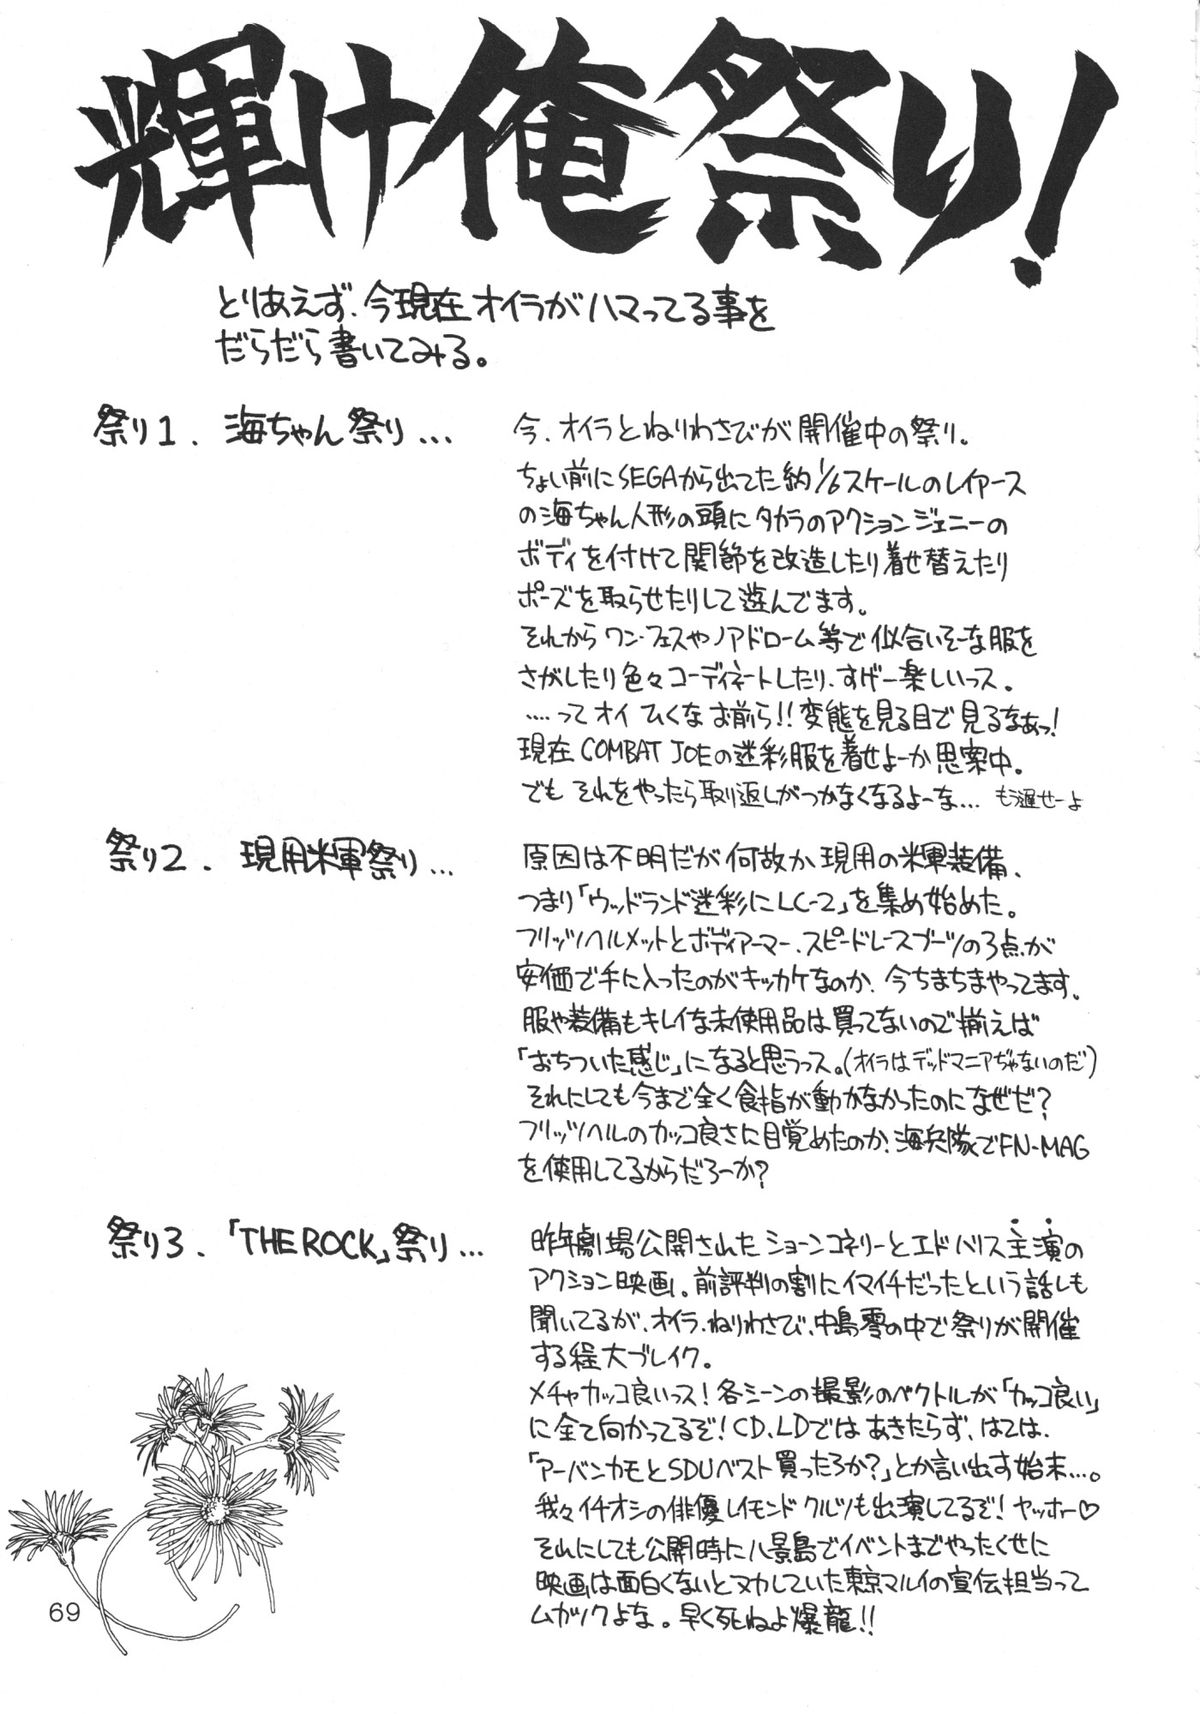 輝け俺祭り!
とりあえず、今現在オイラがハマってる事を
だらだら書いてみる。
祭り1. 海ちゃん祭り...
今、オイラとねりわさびが開催中の祭り。
ちょい前にSEGAから出てた約1/6スケールのレイアース
の海ちゃん人形の頭にタカラのアクションジェニーの
ボディを付けて関節を改造したり着せ替えたり
ポーズを取らせたりして遊んでます。
それからワン・フェスやノアドローム等で似合いそーな服を
さがしたり色々コーディネートしたり、すげー楽しいっス。
....ってオイ ひくな お前ら!!変態を見る目で見るなぁっ!
現在 COMBAT JOEの迷彩服を着せよーか思案中。
でも それをやったら取り返しがつかなくなるよーな... もう遅せーよ
祭り2. 現用米軍祭り...
原因は不明だが何故か現用の米軍装備、
つまり「ウッドランド迷彩にLC-2」を集め始めた。
フリッツヘルメットとボディアーマー、スピードレースブーツの3点が
安価で手に入ったのがキッカケなのか、今ちまちまやってます。
服や装備もキレイな未使用品は買ってないので揃えば
「おちついた感じ」になると思うっス。(オイラはデッドマニアぢゃないのだ)
それにしても今まで全く食指が動かなかったのになぜだ?
フリッツヘルのカッコ良さに目覚めたのか、海兵隊でFN-MAG
を使用してるからだろーか?
祭り3. 「THE ROCK」祭り...
昨年劇場公開されたショーンコネリーとエドハリス主演の
アクション映画。前評判の割にイマイチだったという話しも
聞いてるが、オイラ、ねりわさび、中島零の中で祭りが開催
する程大ブレイク。
メチャカッコ良いっス!各シーンの撮影のベクトルが「カッコ良い」
に全て向かってるぞ!CD、LDではあきたらず、はては、
「アーバンカモとSDUベスト買ったろか?」とか言い出す始末...。
我々イチオシの俳優レイモンドクルツも出演してるぞ!ヤッホー♡
それにしても公開時に八景島でイベントまでやったくせに
映画は面白くないとヌカしていた東京マルイの宣伝担当って
ムカツクよな。早く死ねよ爆龍!!
69